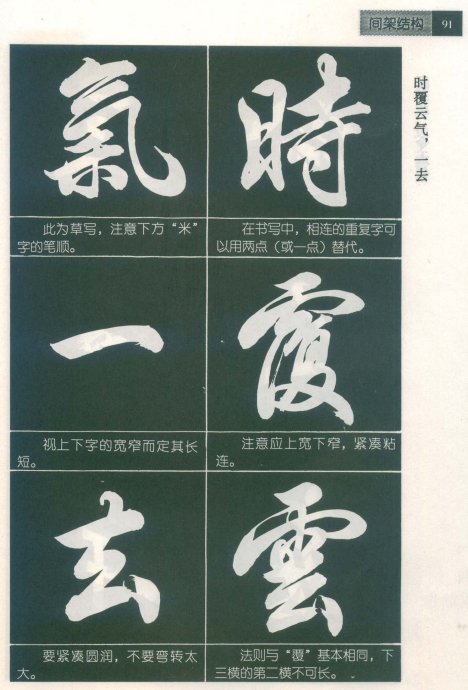 间架结构 91
时覆云气，一去
時
在书写中，相连的重复字可
以用两点（或一点）替代。
覆
注意应上宽下窄，紧凑粘
连。
雲
法则与“覆”基本相同，下
三横的第二横不可长。
氣
此为草写，注意下方“米”
字的笔顺。
一
视上下字的宽窄而定其长
短。
去
要紧凑圆润，不要弯转太
大。